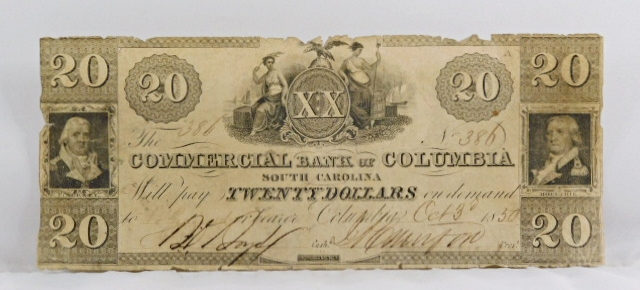 20 20
20 XX 20
The 386 No 386
COMMERCIAL BANK OF COLUMBIA
SOUTH CAROLINA
Will pay TWENTY DOLLARS on demand
to or bearer Columbia Oct 3d 18
Cashr Prest
20 20